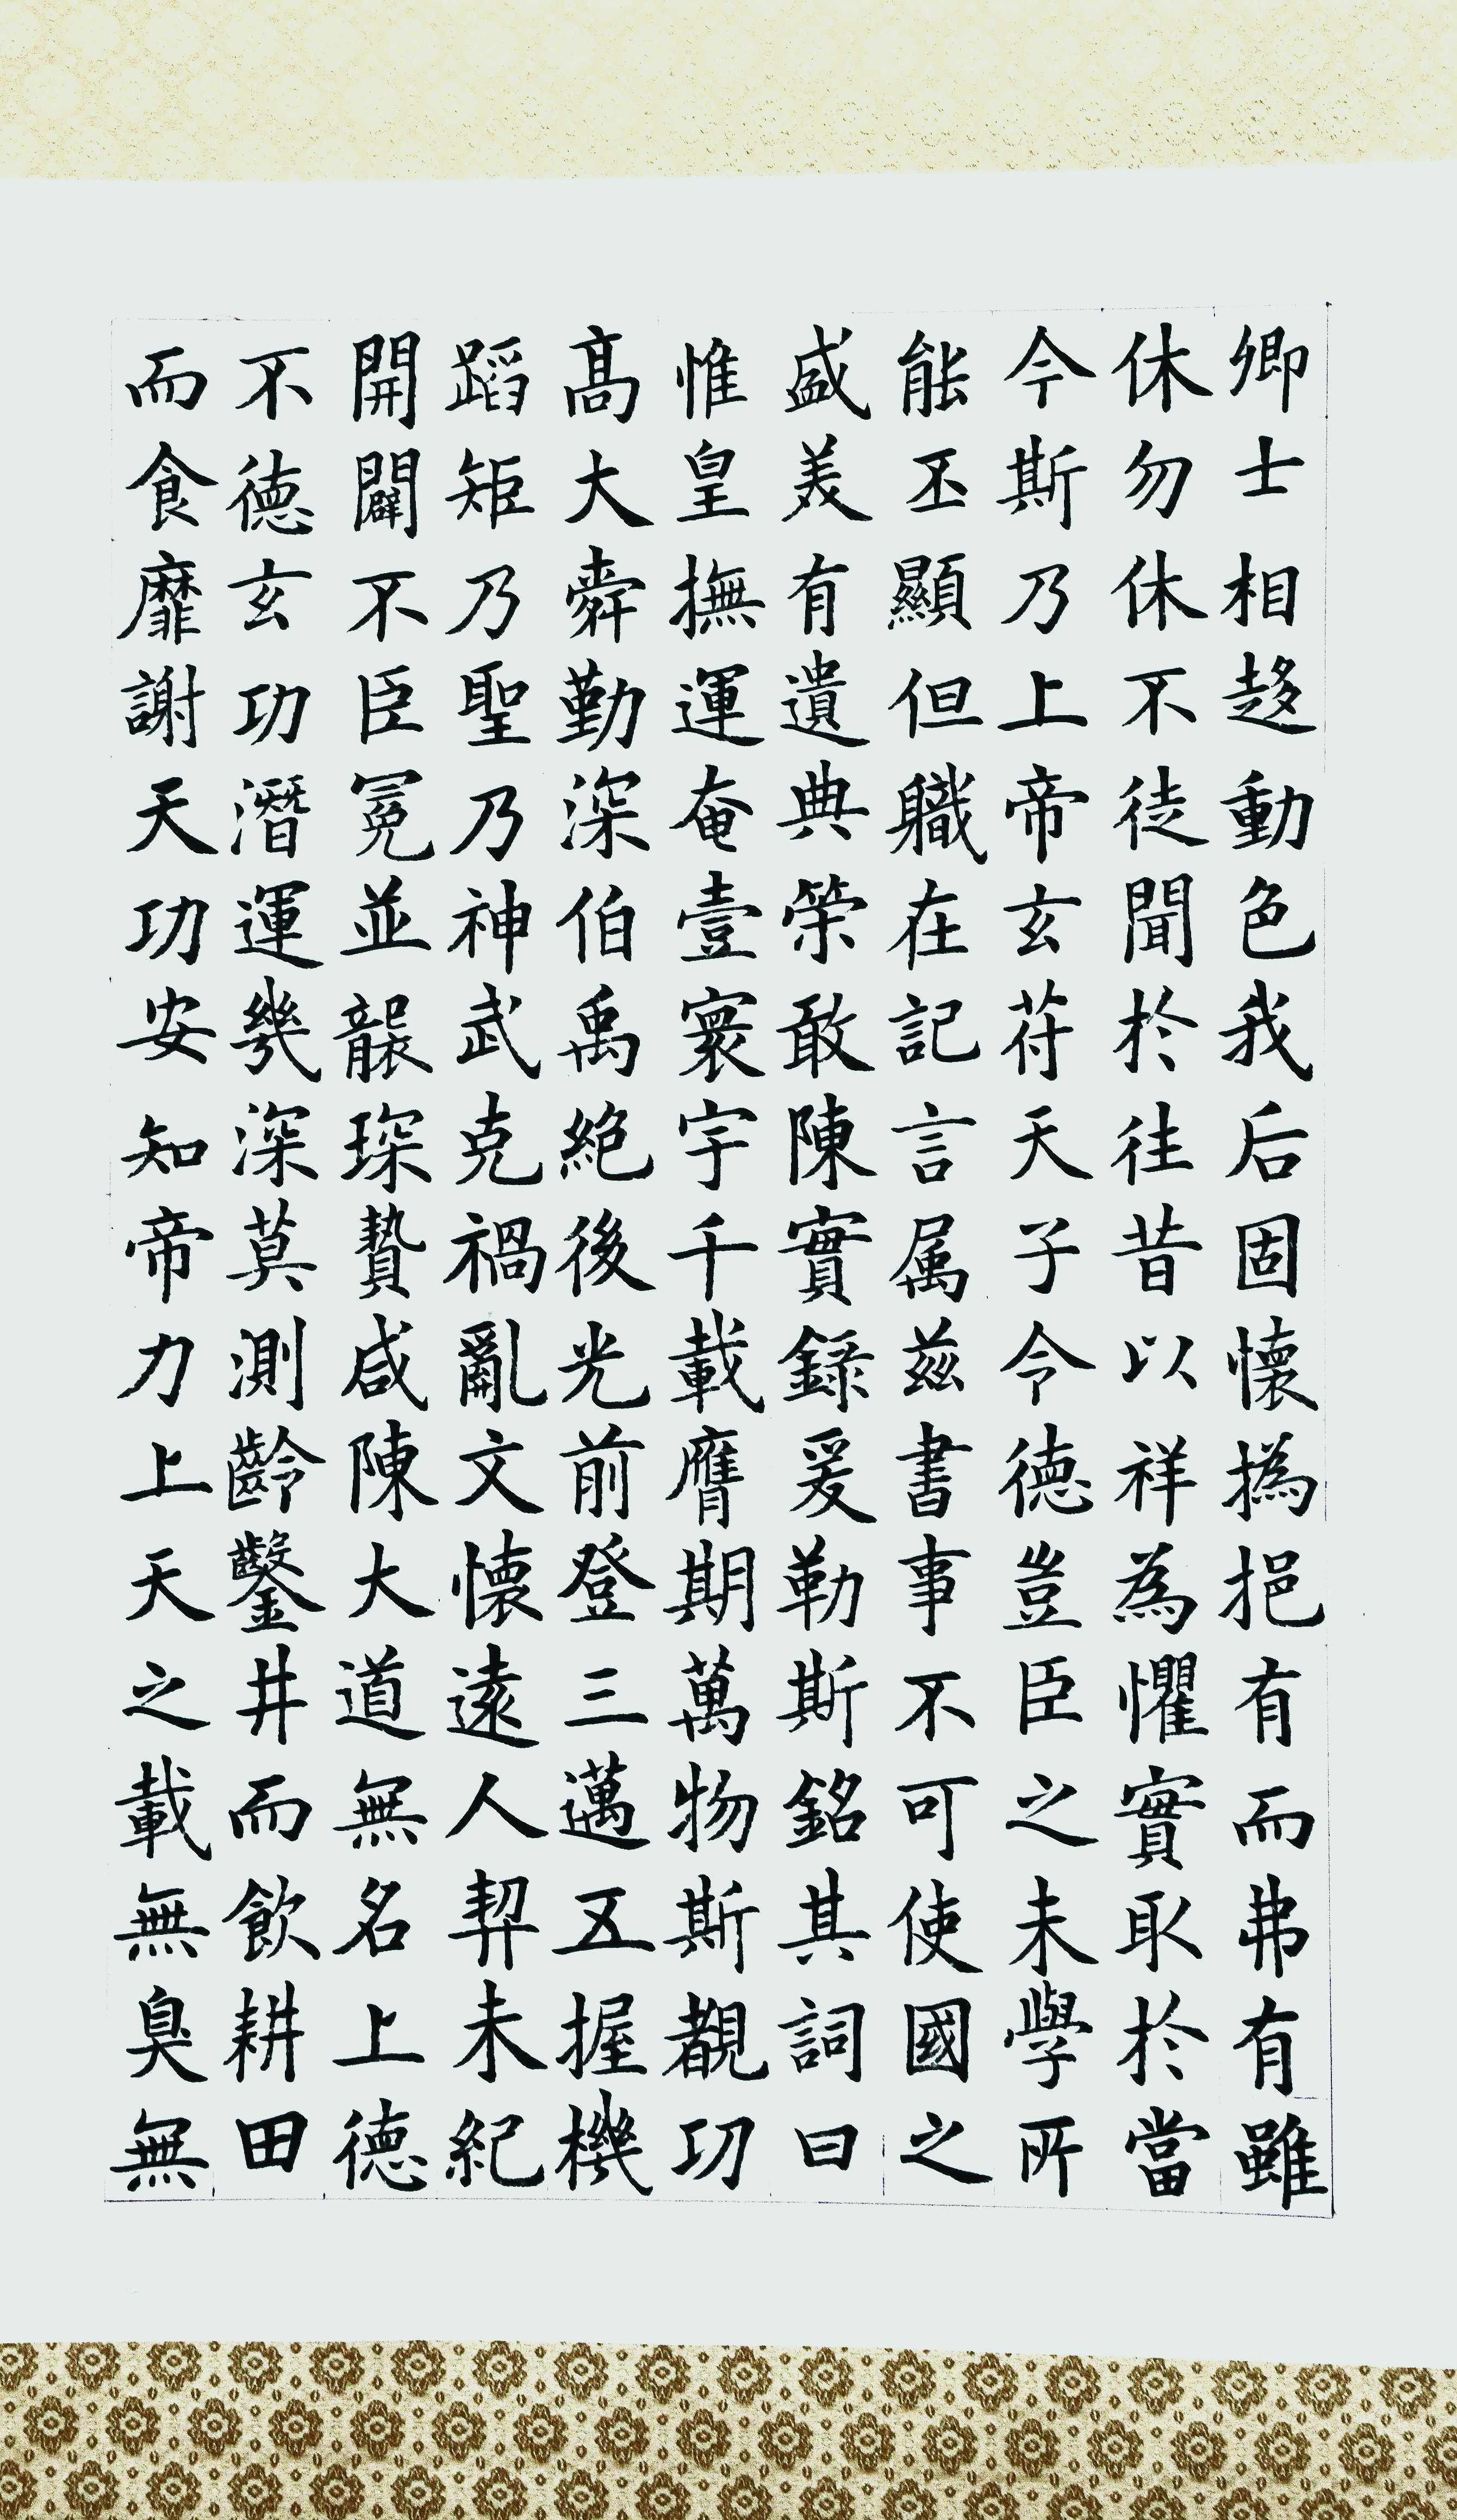 卿士相趍動色我后固懷撝挹有而弗有雖
休勿休不徒聞於往昔以祥為懼實取於當
今斯乃上帝玄苻天子令德豈臣之末學所
能丕顯但職在記言属茲書事不可使國之
盛美有遺典策敢陳實錄爰勒斯銘其詞曰
惟皇撫運奄壹寰宇千載膺期萬物斯覩功
髙大舜勤深伯禹絶後光前登三邁五握機
蹈矩乃聖乃神武克禍亂文懷遠人契未紀
開闢不臣冠冕並襲琛贄咸陳大道無名上德
不德玄功潛運幾深莫測齡鑿井而飲耕田
而食靡謝天功安知帝力上天之載無臭無